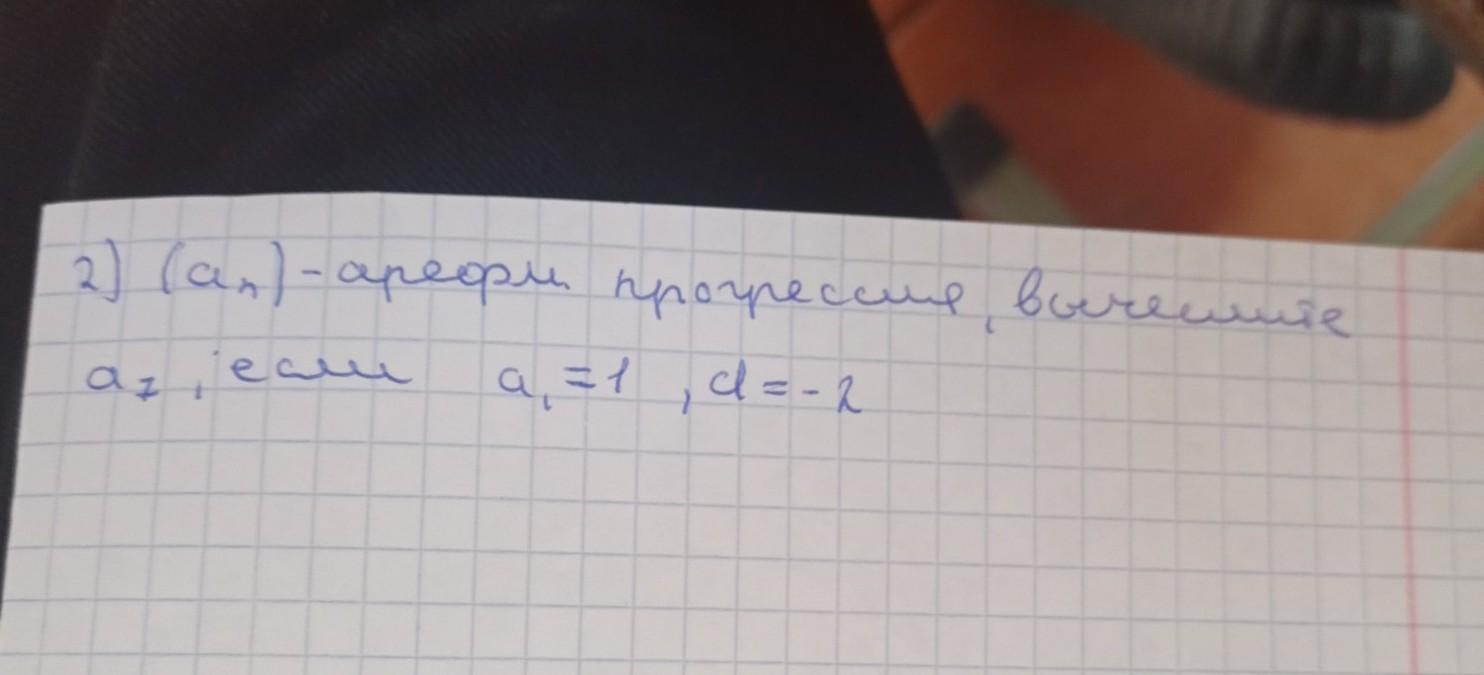 2) (aₙ) - арефм прогрессия, вычеслите
a₇, если a₁ = 1, d = -2